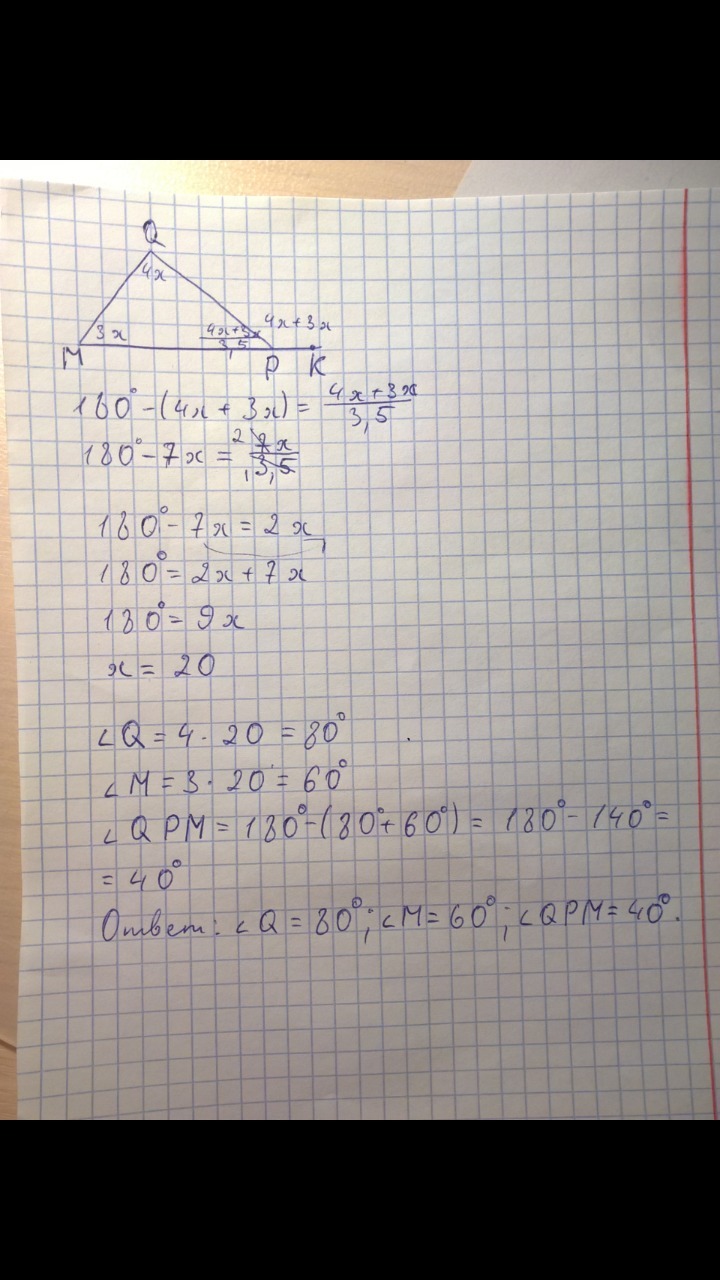 Q
4x
3x
4x+3x
3,5
4x+3x
M
P
K
180°-(4x+3x)= 4x+3x
3,5
180°-7x= 2 7x
1 3,5
180°-7x=2x
180°=2x+7x
180°=9x
x=20
∠Q=4·20=80°
∠M=3·20=60°
∠QPM=180°-(80°+60°)=180°-140°=
=40°
Ответ: ∠Q=80°; ∠M=60°; ∠QPM=40°.